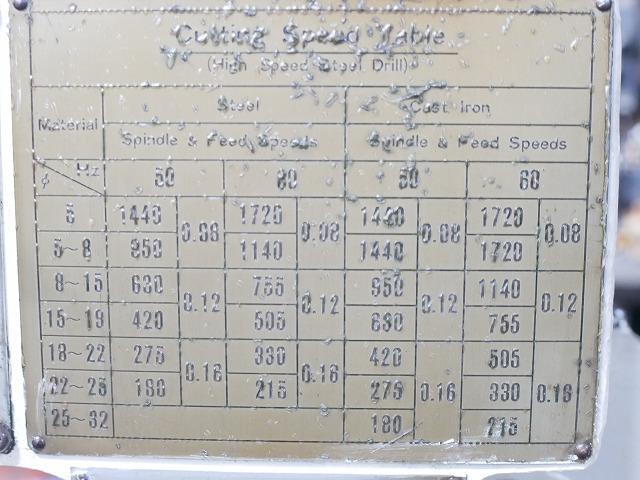 Cutting Speed Table
(High Speed Steel Drill)
Material Steel Cast Iron
Spindle & Feed Speeds Spindle & Feed Speeds
φ Hz 50 60 50 60
5 1440 0.08 1720 0.08 1440 0.08 1720 0.08
5~8 950 1140 1440 1720
8~15 630 0.12 755 0.12 950 0.12 1140 0.12
15~18 420 505 630 755
18~22 275 0.16 330 0.16 420 0.16 505 0.16
22~25 180 215 275 330
25~32 180 215